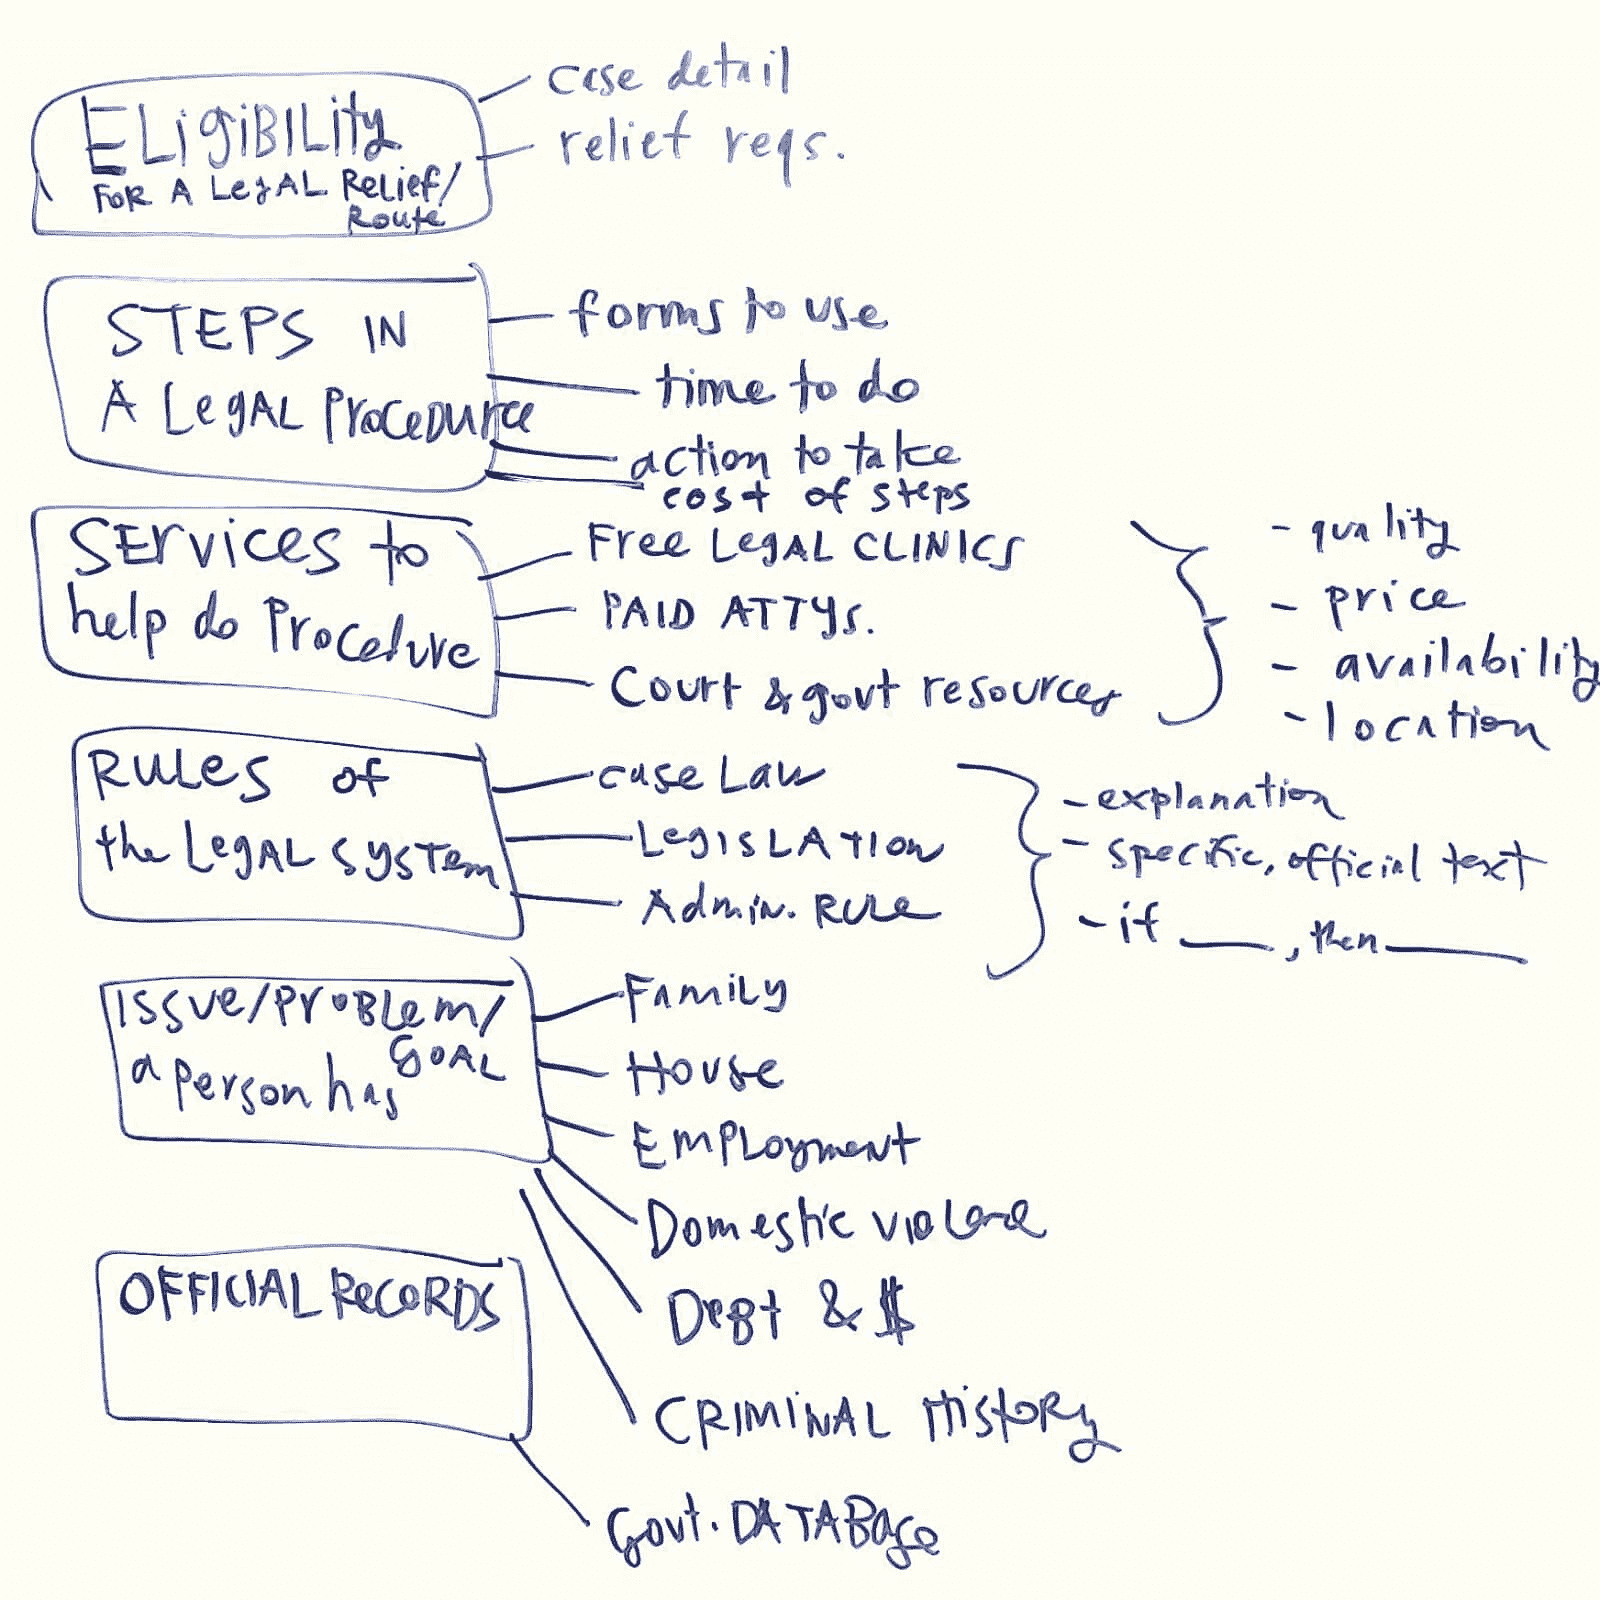 ELigiBILity
FOR A LegAL ReLief/
Route
case detail
relief reqs.
STEPS IN
A LegAL ProceDure
forms to use
time to do
action to take
cost of steps
SErvices to
help do Procedure
Free LegAL CLINICS
PAID ATTYs.
Court & govt resources
- quality
- price
- availability
- location
RULes of
the LegAL system
case Law
LegISLATION
Admin. RULe
- explanation
- specific, official text
- if ____, then ____
Issue/ProBLem/
GOAL
a person has
Family
House
EmPLoyment
Domestic violence
DeBt & $
CRIMiNAL History
OFFICIAL RecORDS
Govt. DATABase